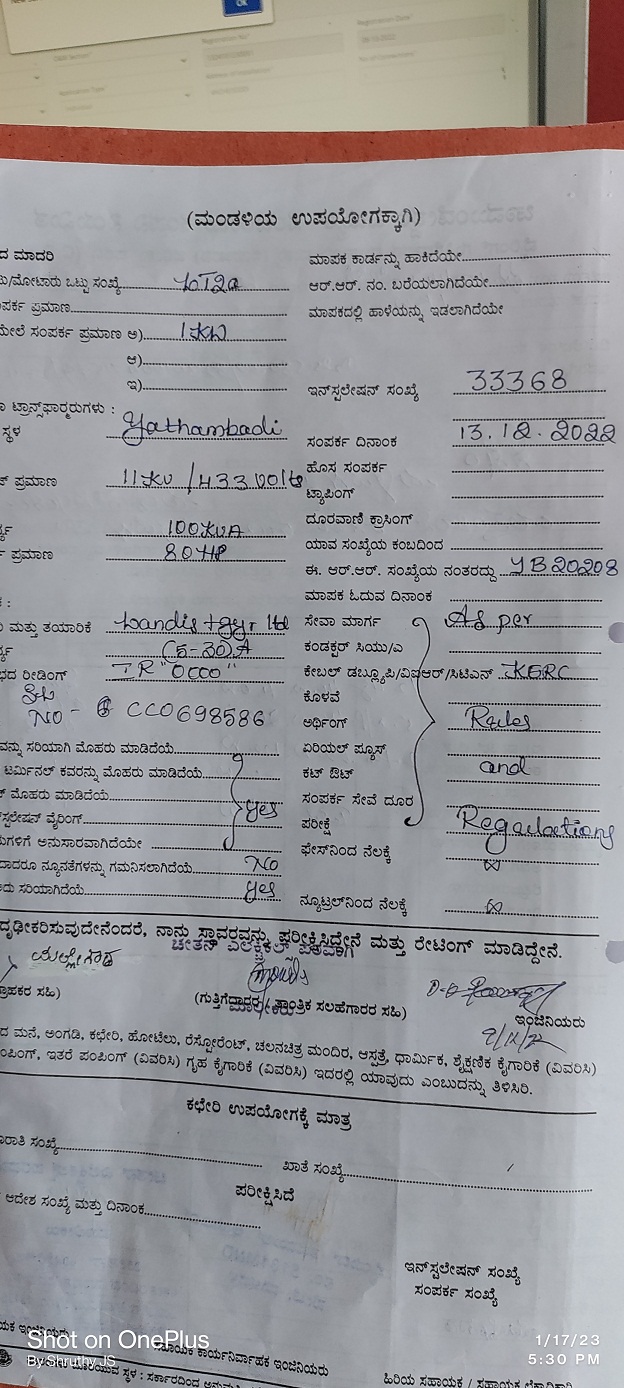 (ಮಂಡಳಿಯ ಉಪಯೋಗಕ್ಕಾಗಿ)
ದ ಮಾದರಿ
ಮಾಪಕ ಕಾರ್ಡನ್ನು ಹಾಕಿದೆಯೇ
ು/ಮೋಟಾರು ಒಟ್ಟು ಸಂಖ್ಯೆ
ಆರ್.ಆರ್. ನಂ. ಬರೆಯಲಾಗಿದೆಯೇ
ಪರ್ಕ ಪ್ರಮಾಣ
ಮಾಪಕದಲ್ಲಿ ಹಾಳೆಯನ್ನು ಇಡಲಾಗಿದೆಯೇ
ಮೇಲೆ ಸಂಪರ್ಕ ಪ್ರಮಾಣ ಅ) 1KW
ಆ)
ಇ)
ಇನ್‌ಸ್ಟಲೇಷನ್ ಸಂಖ್ಯೆ 33368
ಟ್ರಾನ್ಸ್‌ಫಾರ್ಮರುಗಳು :
ಸ್ಥಳ Yathambadi
ಸಂಪರ್ಕ ದಿನಾಂಕ 13.12.2022
ಹೊಸ ಸಂಪರ್ಕ
ಪ್ರಮಾಣ 11KV / 433 Volts
ಟ್ಯಾಪಿಂಗ್
100KVA
ದೂರವಾಣಿ ಕ್ರಾಸಿಂಗ್
ಪ್ರಮಾಣ 80HP
ಯಾವ ಸಂಖ್ಯೆಯ ಕಂಬದಿಂದ
ಈ. ಆರ್.ಆರ್. ಸಂಖ್ಯೆಯ ನಂತರದ್ದು YB20208
ಮಾಪಕ ಓದುವ ದಿನಾಂಕ
ಮತ್ತು ತಯಾರಿಕೆ Landis + gyr ltd
ಸೇವಾ ಮಾರ್ಗ As per
(5-30)A
ಕಂಡಕ್ಟರ್ ಸಿಯು/ಎ
ಭದ ರೀಡಿಂಗ್ IR "0000"
ಕೇಬಲ್ ಡಬ್ಲ್ಯೂಪಿ/ವಿಐಆರ್/ಸಿಟಿಎನ್ KERC
ಕೊಳವೆ
NO - CC0698586
ಅರ್ಥಿಂಗ್ Rules
ವನ್ನು ಸರಿಯಾಗಿ ಮೊಹರು ಮಾಡಿದೆಯೆ
ಏರಿಯಲ್ ಫ್ಯೂಸ್
ಟರ್ಮಿನಲ್ ಕವರನ್ನು ಮೊಹರು ಮಾಡಿದೆಯೆ
ಕಟ್ ಔಟ್ and
ಮೊಹರು ಮಾಡಿದೆಯೆ
ಸಂಪರ್ಕ ಸೇವೆ ದೂರ
ಸ್ಟಲೇಷನ್ ವೈರಿಂಗ್ yes
ಪರೀಕ್ಷೆ Regulations
ುಗಳಿಗೆ ಅನುಸಾರವಾಗಿದೆಯೇ
ಫೇಸ್‌ನಿಂದ ನೆಲಕ್ಕೆ ∞
ದಾದರೂ ನ್ಯೂನತೆಗಳನ್ನು ಗಮನಿಸಲಾಗಿದೆಯೆ No
ದು ಸರಿಯಾಗಿದೆಯೆ yes
ನ್ಯೂಟ್ರಲ್‌ನಿಂದ ನೆಲಕ್ಕೆ ∞
ದೃಢೀಕರಿಸುವುದೇನೆಂದರೆ, ನಾನು ಸ್ಥಾವರವನ್ನು ಪರೀಕ್ಷಿಸಿದ್ದೇನೆ ಮತ್ತು ರೇಟಿಂಗ್ ಮಾಡಿದ್ದೇನೆ.
ಾಹಕರ ಸಹಿ)
(ಗುತ್ತಿಗೆದಾರರ / ತಾಂತ್ರಿಕ ಸಲಹೆಗಾರರ ಸಹಿ)
ಇಂಜಿನಿಯರು
ದ ಮನೆ, ಅಂಗಡಿ, ಕಛೇರಿ, ಹೋಟೆಲು, ರೆಸ್ಟೋರೆಂಟ್, ಚಲನಚಿತ್ರ ಮಂದಿರ, ಆಸ್ಪತ್ರೆ, ಧಾರ್ಮಿಕ, ಶೈಕ್ಷಣಿಕ ಕೈಗಾರಿಕೆ (ವಿವರಿಸಿ)
ಂಪಿಂಗ್, ಇತರೆ ಪಂಪಿಂಗ್ (ವಿವರಿಸಿ) ಗೃಹ ಕೈಗಾರಿಕೆ (ವಿವರಿಸಿ) ಇದರಲ್ಲಿ ಯಾವುದು ಎಂಬುದನ್ನು ತಿಳಿಸಿರಿ.
ಕಛೇರಿ ಉಪಯೋಗಕ್ಕೆ ಮಾತ್ರ
ರಾತಿ ಸಂಖ್ಯೆ
ಖಾತೆ ಸಂಖ್ಯೆ
ಪರೀಕ್ಷಿಸಿದೆ
ಆದೇಶ ಸಂಖ್ಯೆ ಮತ್ತು ದಿನಾಂಕ
ಇನ್‌ಸ್ಟಲೇಷನ್ ಸಂಖ್ಯೆ
ಸಂಪರ್ಕ ಸಂಖ್ಯೆ
ಕಾರ್ಯನಿರ್ವಾಹಕ ಇಂಜಿನಿಯರು
Shot on OnePlus
By Shruthy JS
1/17/23
5:30 PM